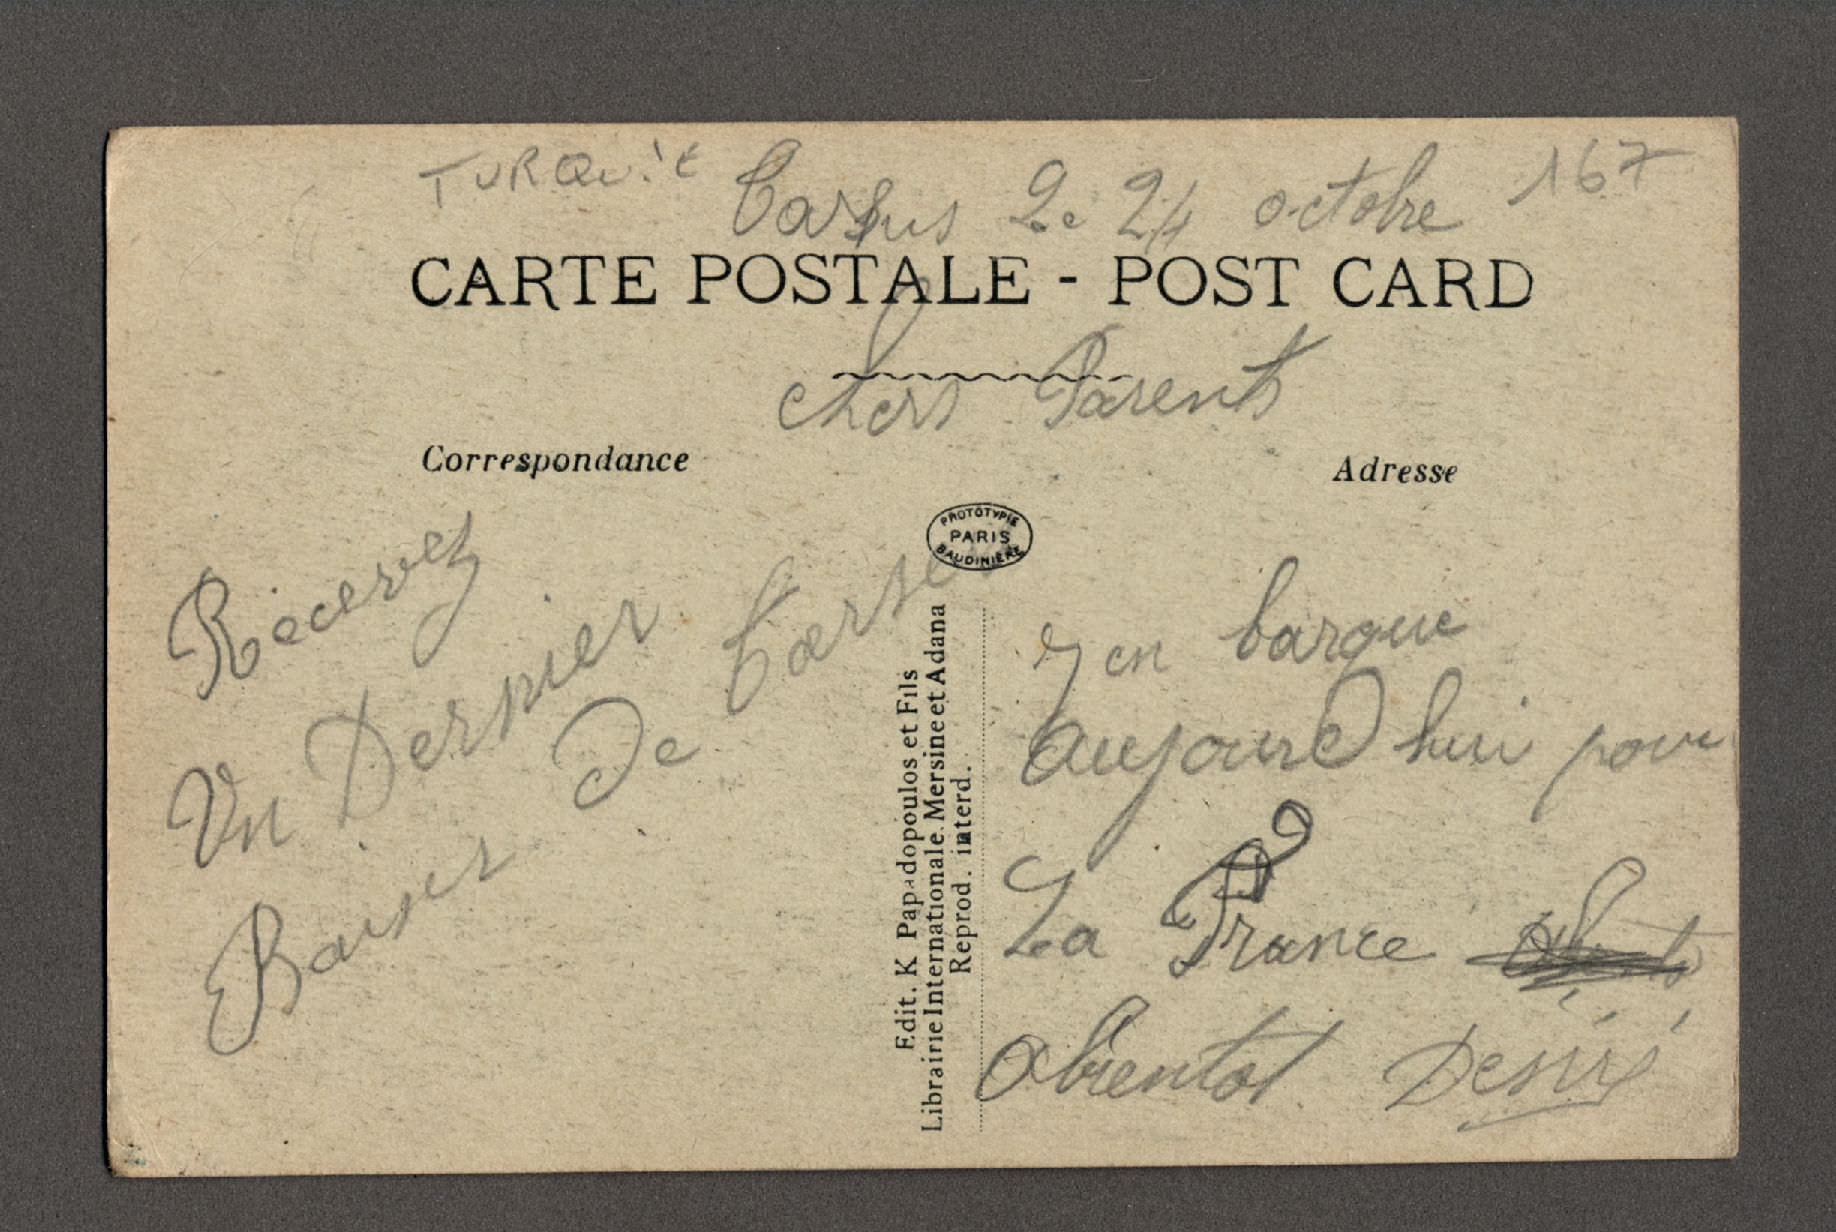 TURQUiE
167
Tarsus Le 24 octobre
CARTE POSTALE - POST CARD
chers Parents
Correspondance
Adresse
Recevez
Un Dernier
Baiser De Tarse
PROTOTYPIE
PARIS
BAUDINIÈRE
Edit. K Papadopoulos et Fils
Librairie Internationale Mersine et Adana
Reprod. interd.
J en barque
aujourd hui pour
La France
abientot Desiré